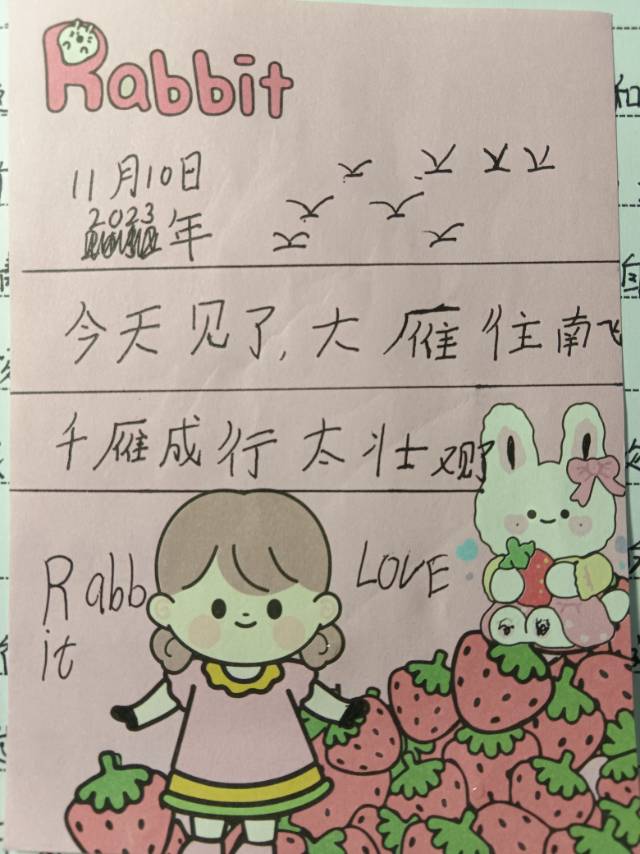 Rabbit
11月10日
2023年
今天见了,大雁往南飞
千雁成行太壮观
Rabb
it
LOVE